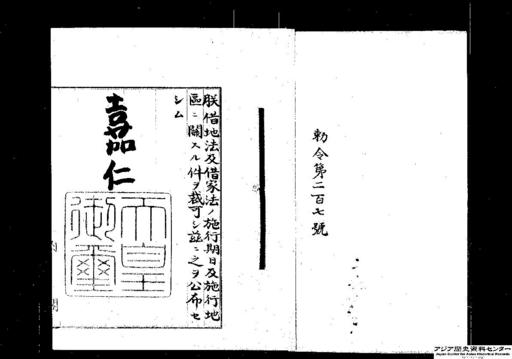 勅令第二百七號
朕借地法及借家法ノ施行期日及施行地
區ニ關スル件ヲ裁可シ茲ニ之ヲ公布セ
シム
嘉仁
天皇
御璽
内閣
アジア歴史資料センター
Japan Center for Asian Historical Records